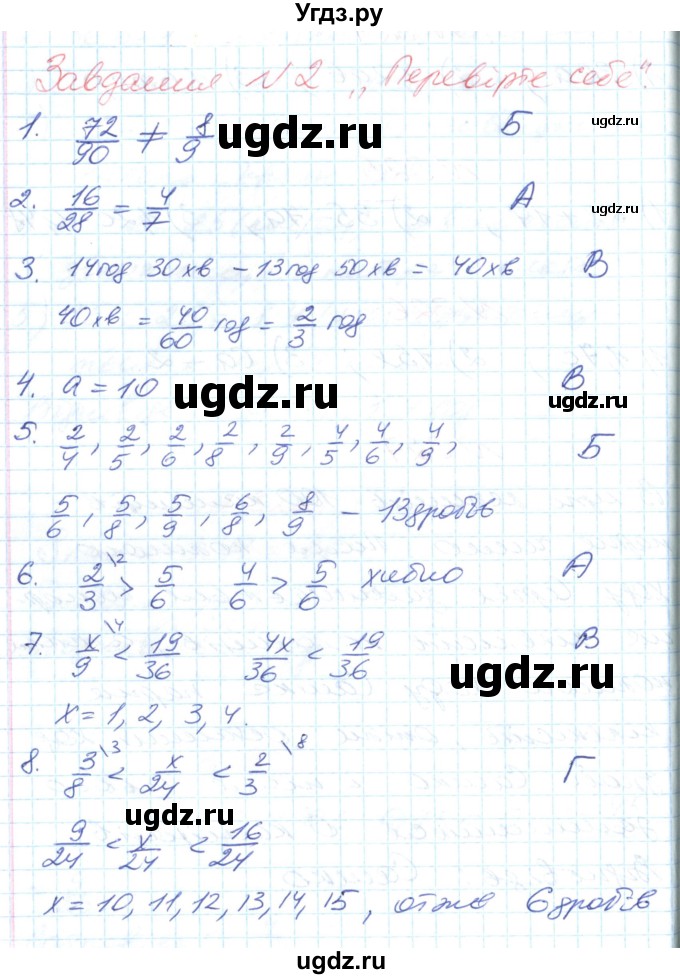 Угдз.ру
Завдання №2 „Перевірте себе".
1. 72/90 ≠ 8/9 Б
ugdz.ru
ugdz.ru
2. 16/28 = 4/7 А
ugdz.ru
3. 14год 30хв – 13год 50хв = 40хв В
40хв = 40/60 год = 2/3 год
4. a = 10 В
ugdz.ru
ugdz.ru
5. 2/4, 2/5, 2/6, 2/8, 2/9, 4/5, 4/6, 4/9, Б
5/6, 5/8, 5/9, 6/8, 8/9 – 13дробів
6. 2/3 \2 > 5/6 4/6 > 5/6 хибно А
7. x/9 \4 < 19/36 4x/36 < 19/36 В
ugdz.ru
x = 1, 2, 3, 4.
8. 3/8 \3 < x/24 < 2/3 \8 Г
ugdz.ru
9/24 < x/24 < 16/24
x = 10, 11, 12, 13, 14, 15, отже 6дробів
ugdz.ru
ugdz.ru